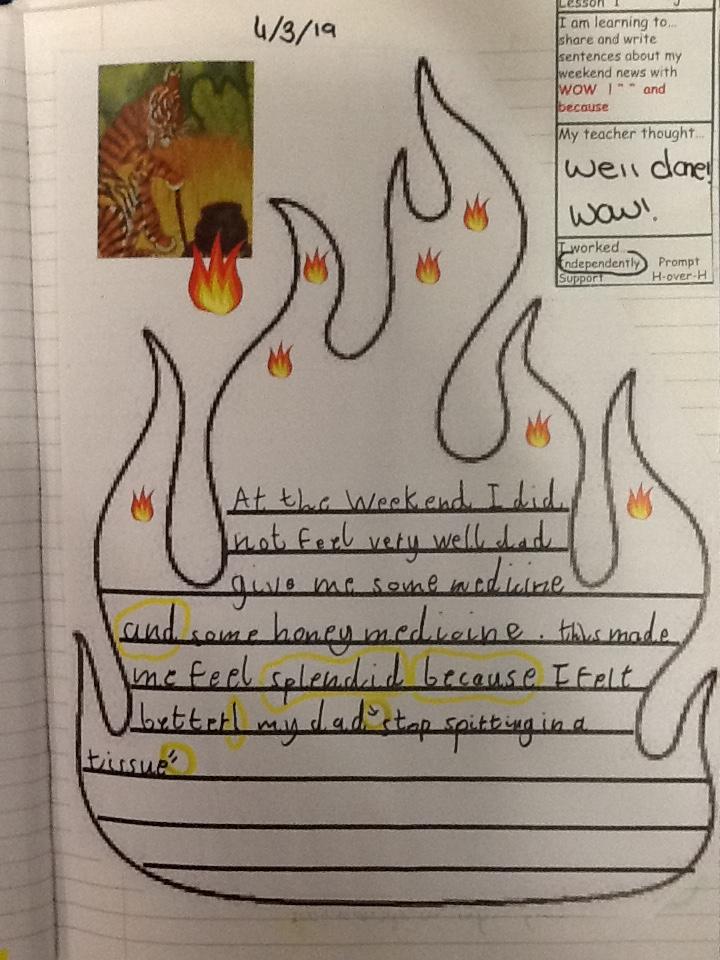 4/3/19
Lesson 1
I am learning to...
share and write
sentences about my
weekend news with
WOW ! " " and
because
My teacher thought...
Well done!
Wow!
I worked
Independently Prompt
Support H-over-H
At the Weekend I did
not feel very well dad
give me some medicine
and some honey medicine. this made
me feel splendid because I felt
better! my dad "stop spitting in a
tissue"